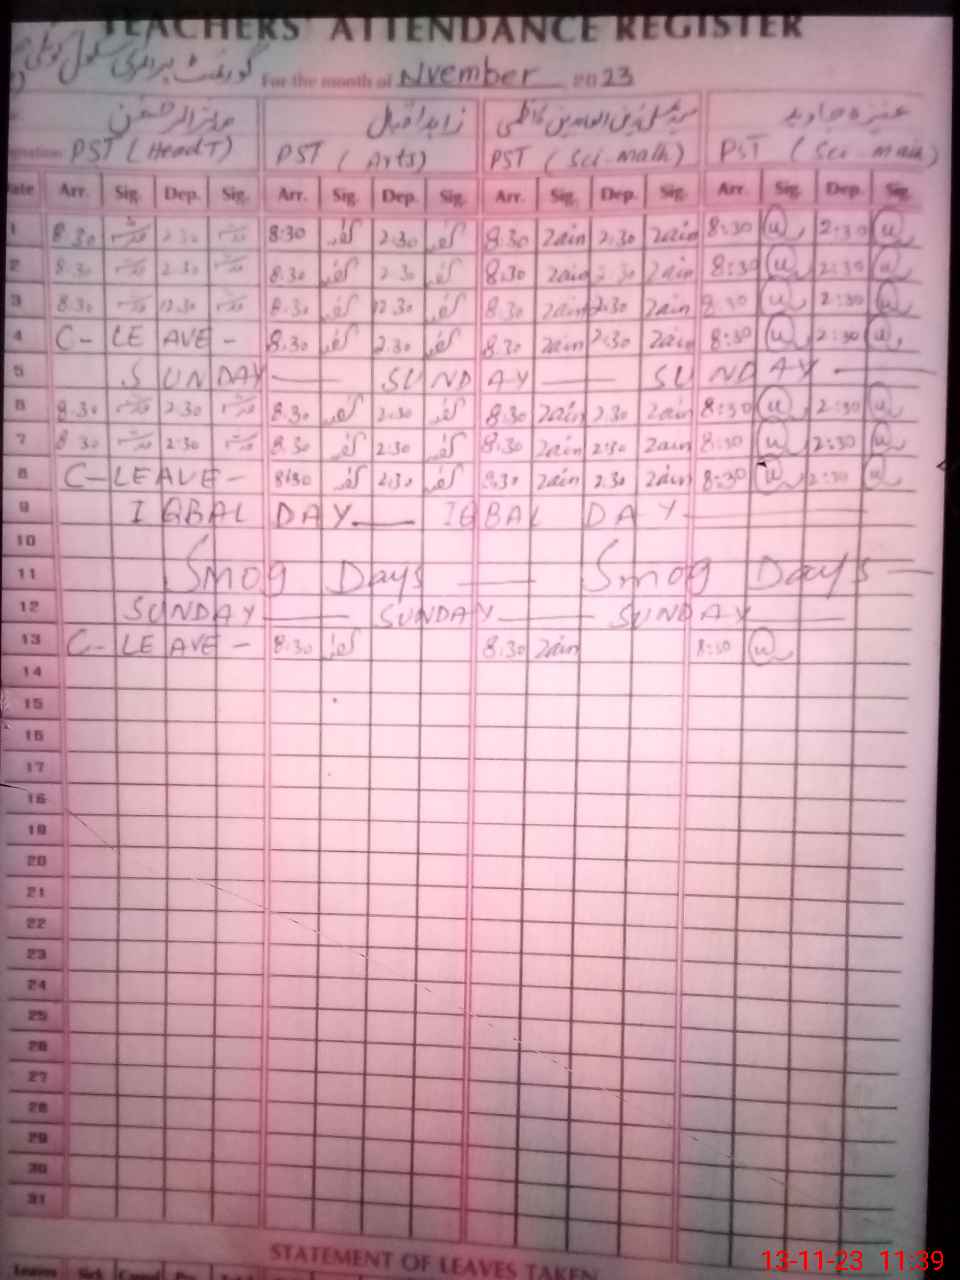 TEACHERS' ATTENDANCE REGISTER
گورنمنٹ پرائمری سکول
For the month of Nvember 2023
زاہد اقبال عنیزہ جاوید
PST (HeadT) PST (Arts) PST (Sci-math) PST (Sci-math)
Date Arr. Sig. Dep. Sig. Arr. Sig. Dep. Sig. Arr. Sig. Dep. Sig. Arr. Sig. Dep. Sig.
1 8.30 2.30 8:30 2.30 8.30 Zain 2.30 Zain 8:30 2:30
2 8.30 2.30 8.30 2.30 8.30 Zain 2.30 Zain 8:30 2:30
3 8.30 12.30 8.30 12.30 8.30 Zain 2.30 Zain 8.30 2:30
4 C- LEAVE - 8.30 2.30 8.30 Zain 2.30 Zain 8:30 2:30
5 SUNDAY — SUNDAY — SUNDAY —
6 8.30 2.30 8.30 2.30 8.30 Zain 2.30 Zain 8:30 2:30
7 8.30 2:30 8.30 2:30 8.30 Zain 2:30 Zain 8:30 2:30
8 C- LEAVE - 8:30 2.30 8.30 Zain 2.30 Zain 8:30 2:30
9 IQBAL DAY — IQBAL DAY —
10
11 Smog Days — Smog Days —
12 SUNDAY — SUNDAY — SUNDAY —
13 C- LEAVE - 8.30 8.30 Zain 8:30
14
15
16
17
18
19
20
21
22
23
24
25
26
27
28
29
30
31
STATEMENT OF LEAVES TAKEN
Leaves Sick Casual
13-11-23 11:39